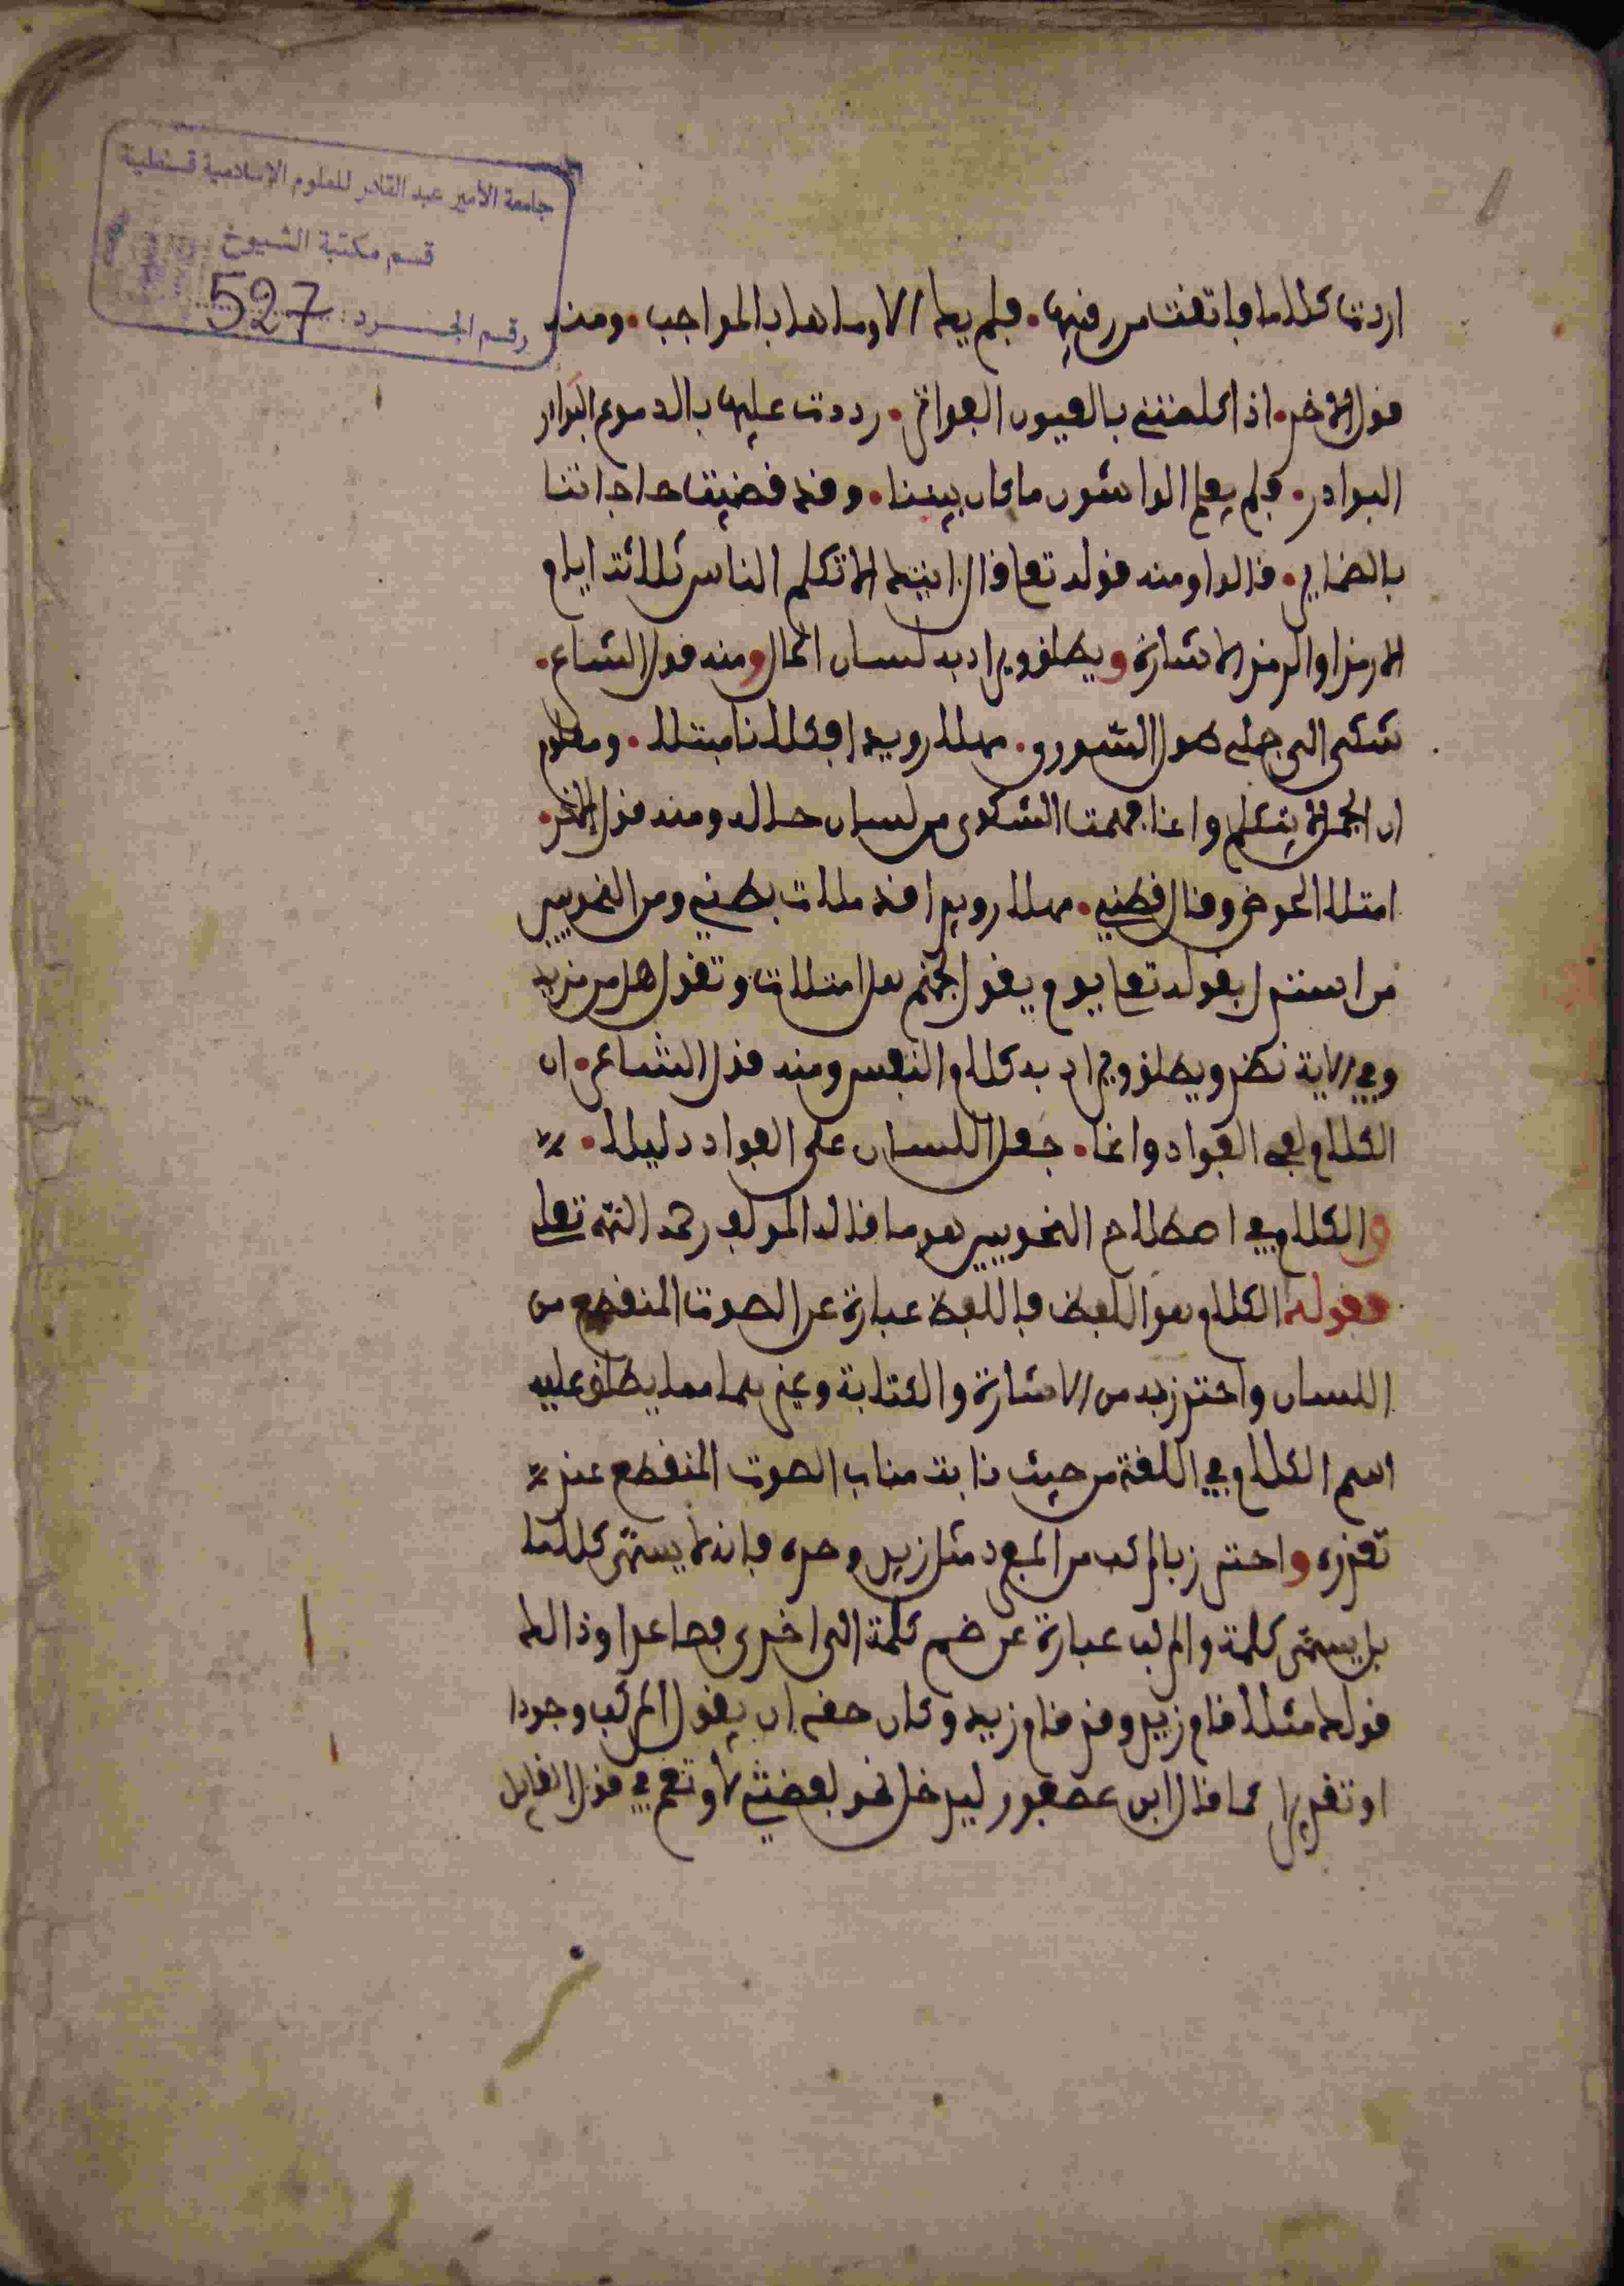 جامعة الأمير عبد القادر للعلوم الإسلامية قسنطينة
قسم مكتبة الشيوخ
رقم الجرد: 527
اردت كلاما فاتقت من رقيبها • فلم يك الا ومئها بالحواجب • ومنه
قول الاخر • اذا كلمتني بالعيون الفواتر • رددت عليها بالدموع البوادر
البوادر • فلم يعلم الواشون ما كان بيننا • وقد قضيت حاجاتنا
بالضماير • قالوا ومنه قوله تعا قال ايتك الا تكلم الناس ثلاثة ايام
الا رمزا والرمز الاشارة ويطلق ويراد به لسان الحال ومنه قول الشاعر •
شكى الي جملي طول السرى • مهلا رويدا فكلانا مبتلا • ومعلوم
ان الجمل لا يتكلم وانما فهمت الشكوى من لسان حاله ومنه قول الاخر •
امتلا الحوض وقال قطني • مهلا رويدا قد ملات بطني ومن النحويين
من استدل بقوله تعا يوم يقول لجهنم هل امتلات وتقول هل من مزيد
وفي الاية نظر ويطلق ويراد به كلام النفس ومنه قول الشاعر • ان
الكلام لفي الفواد وانما • جعل اللسان على الفواد دليلا •
والكلام في اصطلاح النحويين هو ما قاله المولف رحمه الله تعلى
فقوله الكلام هو اللفظ فاللفظ عبارة عن الصوت المنقطع من
اللسان واحترز به من الاشارة والكتابة وغيرهما مما يطلق عليه
اسم الكلام في اللغة من حيث نابت مناب الصوت المنقطع عنه
تقرره واحترز بالمركب من المفرد مثل زيد وحده فانه لا يسمى كلاما
بل يسمى كلمة والمركب عبارة عن ضم كلمة الى اخرى فصاعدا وذالك
قولك مثلا قام زيد وقد قام زيد وكان حقه ان يقول المركب وجودا
او تقديرا كما قال ابن عصفور ليدخل نحو لفظة لا ونعم في قول القايل